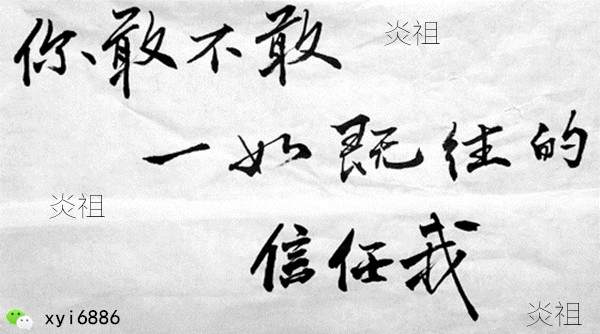 你敢不敢
炎祖
一如既往的
炎祖
信任我
xyi6886
炎祖